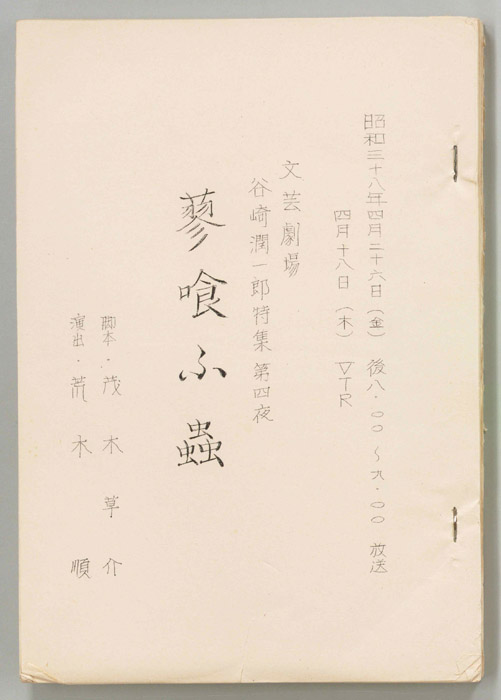 昭和三十八年四月二十六日（金） 後八・〇〇〜九・〇〇 放送
四月十八日（木） VTR
文芸劇場
谷崎潤一郎特集 第四夜
蓼喰ふ蟲
脚本・茂木草介
演出・荒木順